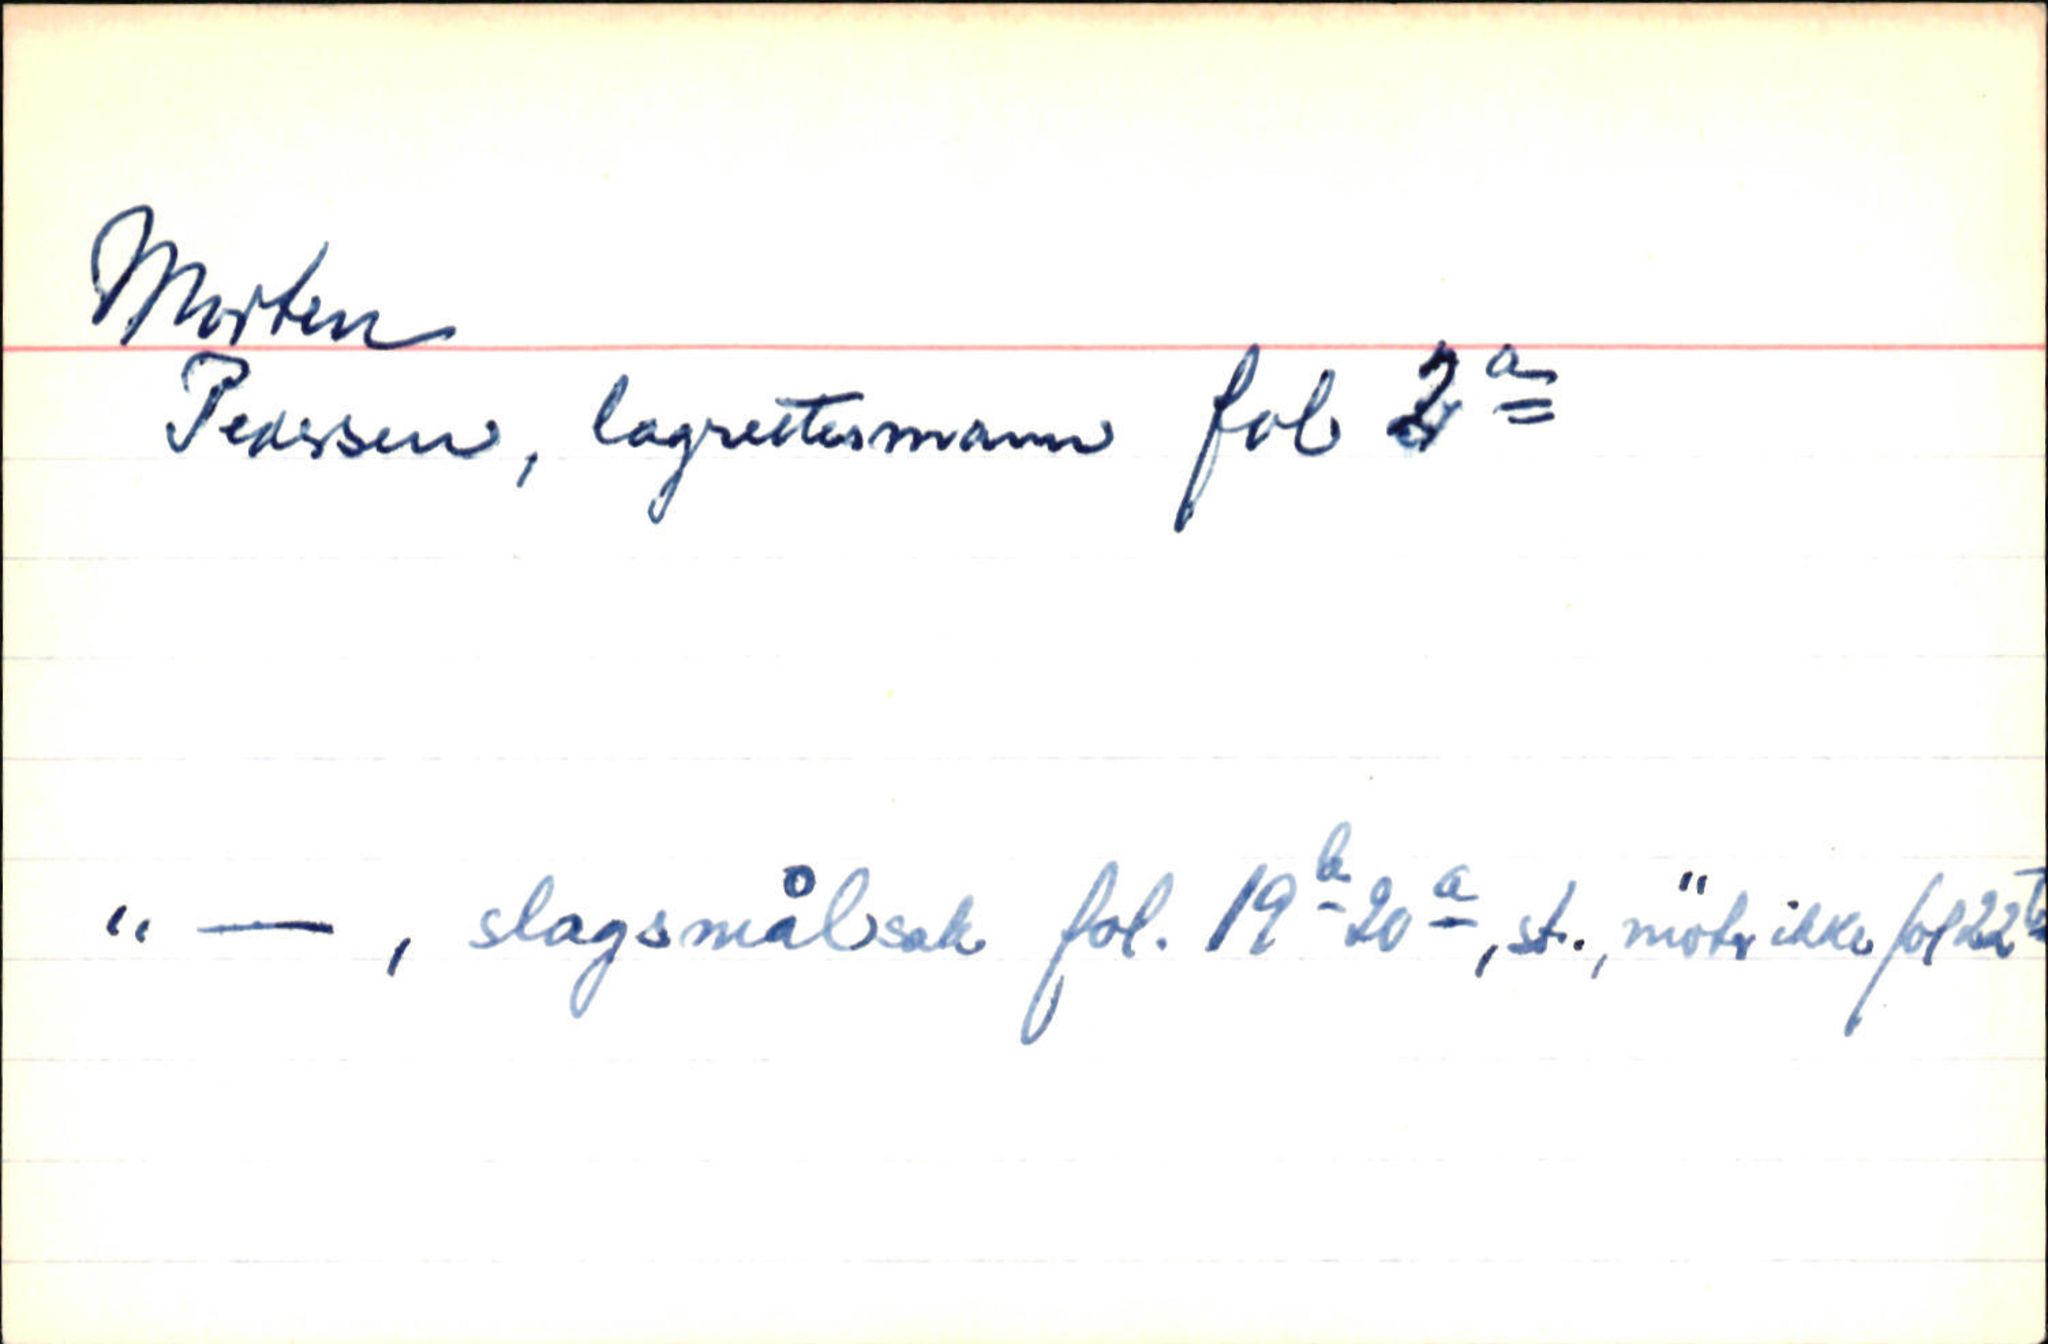 Morten
Pederssen, lagrettesmann fol 2ª
" — , slagsmålsak fol. 19ᵇ-20ª, st., möter ikke fol 22ᵇ